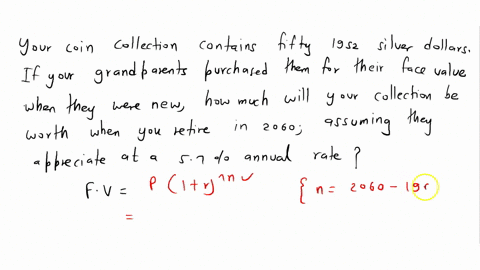 Your coin collection contains fifty 1952 silver dollars.
If your grandparents purchased them for their face value
when they were new, how much will your collection be
worth when you retire in 2060, assuming they
appreciate at a 5.7% annual rate?
F.V = P (1+r)^n ✓ { n = 2060 - 19
=